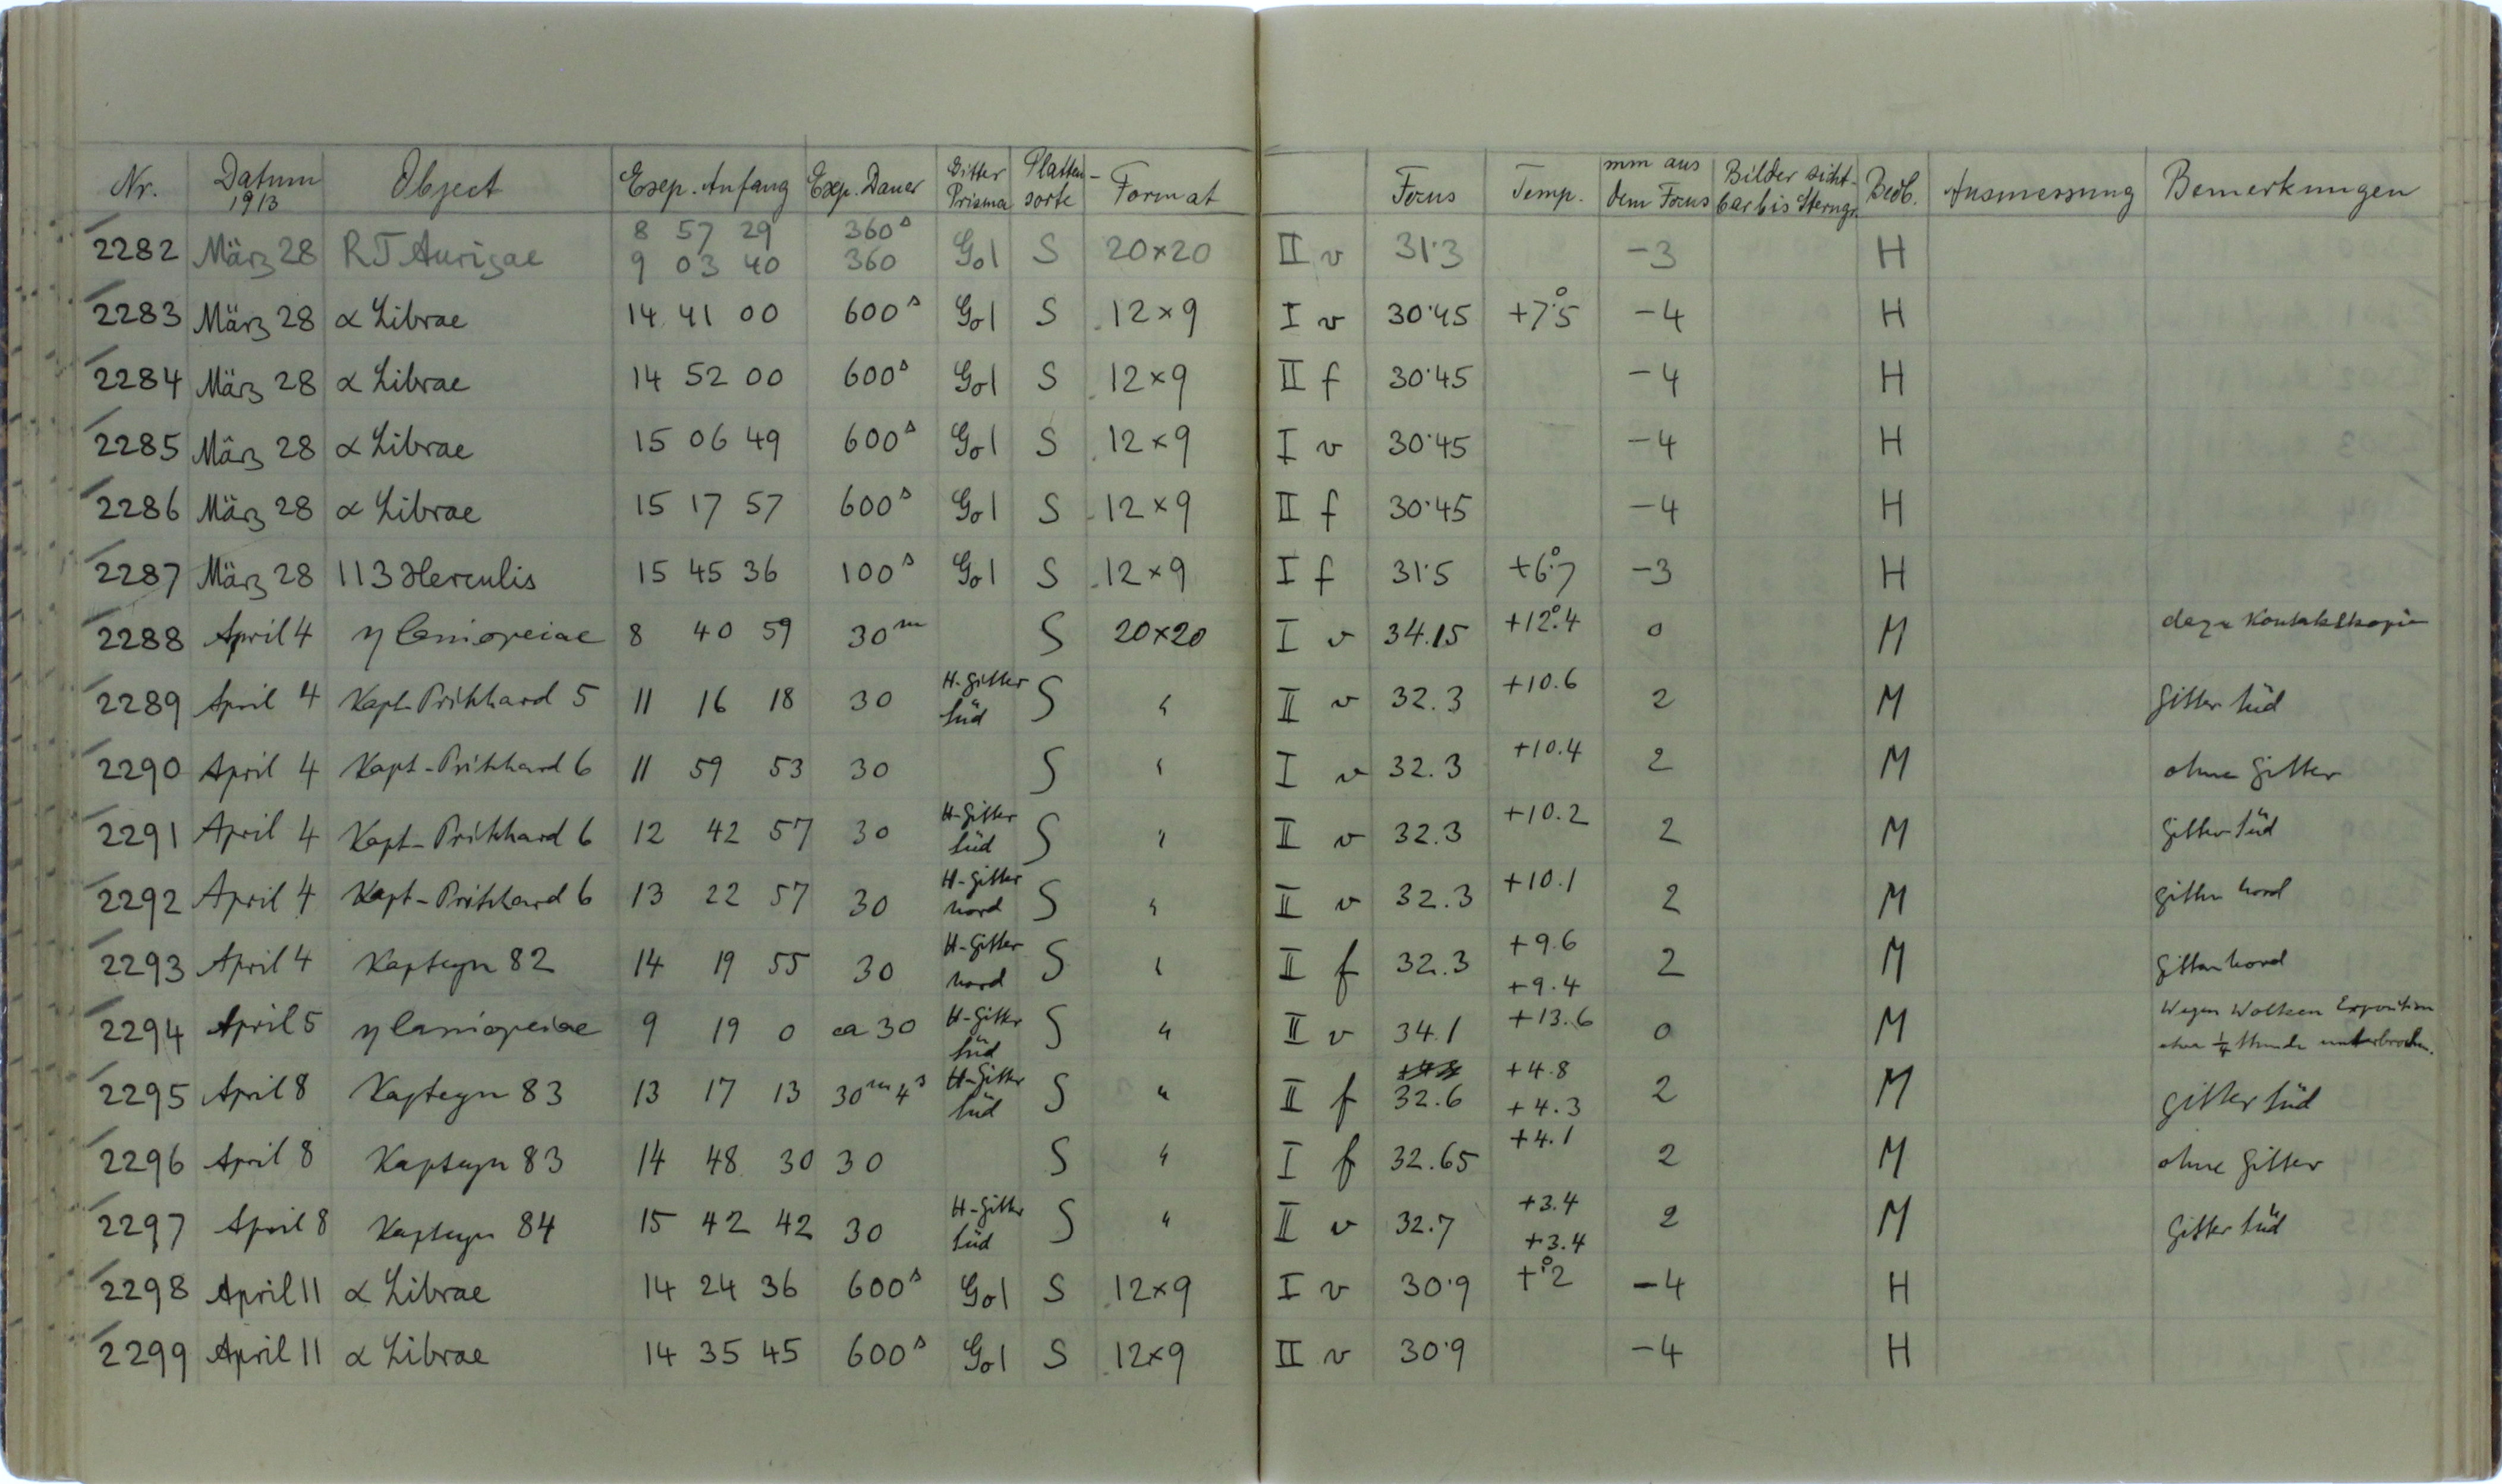 Nr. Datum 1913 Object Exp. Anfang Exp. Dauer Gitter Prisma Platten-sorte Format Focus Temp. mm aus dem Focus Bilder sicht-bar bis Sterngr. Beob. Ausmessung Bemerkungen
2282 März 28 RT Aurigae 8 57 29 360s G01 S 20×20 II v 31·3 -3 H
9 03 40 360
2283 März 28 α Librae 14 41 00 600s G01 S 12×9 I v 30·45 +7°.5 -4 H
2284 März 28 α Librae 14 52 00 600s G01 S 12×9 II f 30·45 -4 H
2285 März 28 α Librae 15 06 49 600s G01 S 12×9 I v 30·45 -4 H
2286 März 28 α Librae 15 17 57 600s G01 S 12×9 II f 30·45 -4 H
2287 März 28 113 Herculis 15 45 36 100s G01 S 12×9 I f 31·5 +6°.7 -3 H
2288 April 4 η Cassiopeiae 8 40 59 30m S 20×20 I v 34.15 +12°.4 0 M dazu Kontaktkopie
2289 April 4 Kapt-Pritchard 5 11 16 18 30 H-Gitter Süd S " II v 32.3 +10.6 2 M Gitter Süd
2290 April 4 Kapt-Pritchard 6 11 59 53 30 S " I v 32.3 +10.4 2 M ohne Gitter
2291 April 4 Kapt-Pritchard 6 12 42 57 30 H-Gitter Süd S " II v 32.3 +10.2 2 M Gitter Süd
2292 April 4 Kapt-Pritchard 6 13 22 57 30 H-Gitter Nord S " II v 32.3 +10.1 2 M Gitter Nord
2293 April 4 Kapteyn 82 14 19 55 30 H-Gitter Nord S " II f 32.3 +9.6 +9.4 2 M Gitter Nord
2294 April 5 η Cassiopeiae 9 19 0 ca 30 H-Gitter Süd S " II v 34.1 +13.6 0 M Wegen Wolken Exposition
etwa 1/4 Stunde unterbrochen.
2295 April 8 Kapteyn 83 13 17 13 30m 4s H-Gitter Süd S " II f 32.6 +4.8 +4.3 2 M Gitter Süd
2296 April 8 Kapteyn 83 14 48 30 30 S " I f 32.65 +4.1 2 M ohne Gitter
2297 April 8 Kapteyn 84 15 42 42 30 H-Gitter Süd S " II v 32.7 +3.4 +3.4 2 M Gitter Süd
2298 April 11 α Librae 14 24 36 600s G01 S 12×9 I v 30·9 +°.2 -4 H
2299 April 11 α Librae 14 35 45 600s G01 S 12×9 II v 30·9 -4 H